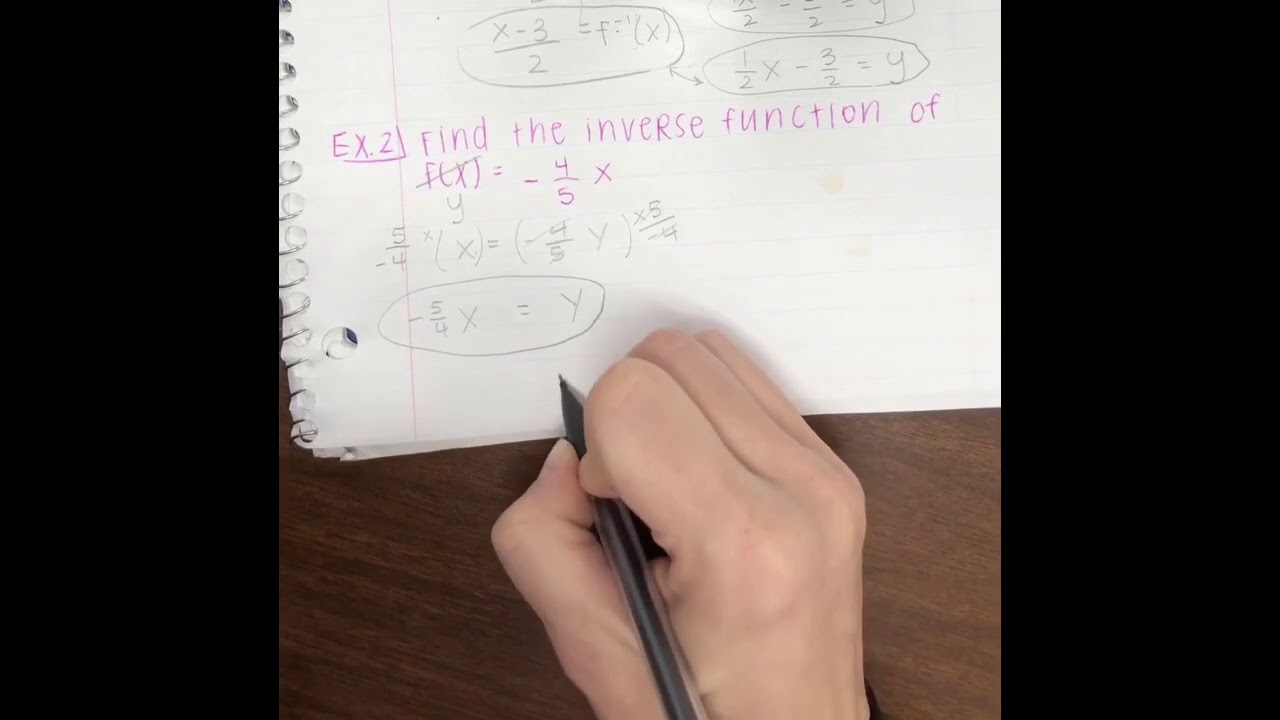 x-3/2 = f⁻¹(x)
1/2 x - 3/2 = y
EX.2 Find the inverse function of
f(x) = - 4/5 x
y
5/-4 x (x) = (-4/5 y) x 5/-4
-5/4 x = y